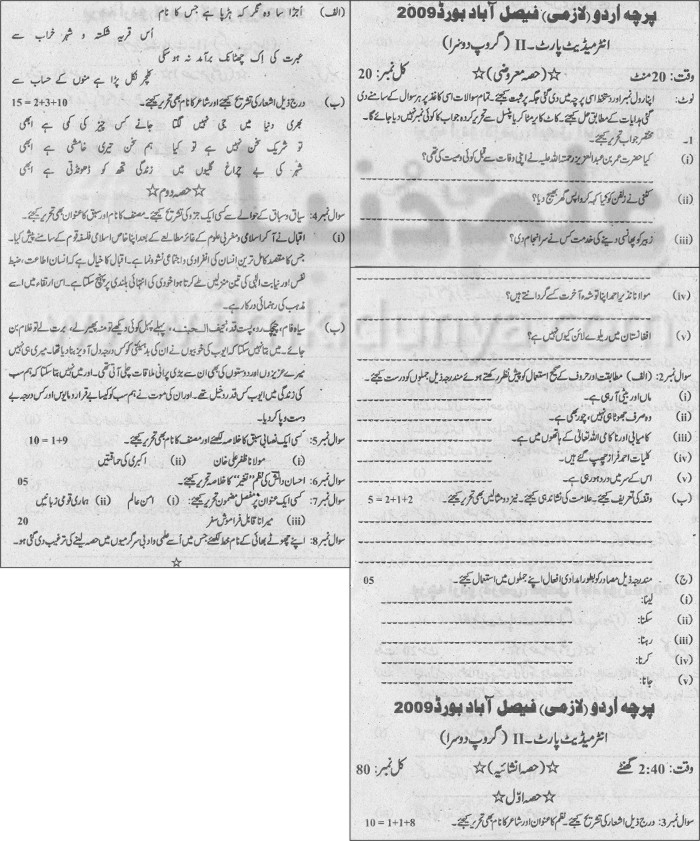 پرچہ اُردو (لازمی) فیصل آباد بورڈ 2009
انٹرمیڈیٹ پارٹ۔ II (گروپ دوسرا)
وقت: 20 منٹ ☆ (حصہ معروضی) ☆ کل نمبر: 20
نوٹ: اپنا رول نمبر اور دستخط اسی پرچہ میں دی گئی جگہ پر ثبت کیجئے۔ تمام سوالات اسی کاغذ پر ہر سوال کے سامنے دی
گئی ہدایات کے مطابق حل کیجئے۔ کاٹ کاٹ یا مٹا کر یا پنسل سے تحریر کردہ جواب کا کوئی نمبر نہیں دیا جائے گا۔
1۔ مختصر جواب تحریر کیجئے۔
(i) کیا حضرت عمر بن عبدالعزیز رحمۃ اللہ علیہ نے اپنی وفات سے قبل کوئی وصیت کی تھی؟
(ii) کٹنی نے زلفن کو کیا کہہ کر واپس گھر بھیج دیا؟
(iii) زبیر کو پھانسی دینے کی خدمت کس نے سرانجام دی؟
(iv) مولانا نذیر احمد اپنا توشہ آخرت کسے گردانتے ہیں؟
(v) افغانستان میں ریلوے لائن کیوں نہیں ہے؟
سوال نمبر 2: (الف) مطابقت اور حروف کے صحیح استعمال کو پیش نظر رکھتے ہوئے مندرجہ ذیل جملوں کو درست کیجئے۔
(i) ماں اور بیٹی آ رہی ہے۔
(ii) وہ صرف جھوٹا ہی نہیں، چور بھی ہے۔
(iii) کامیابی اور ناکامی اللہ تعالٰی کے ہاتھوں میں ہے۔
(iv) کلیات احمد فراز چھپ گئے ہیں۔
(v) اس کے سر میں درد ہو رہی ہے۔
(ب) وقفہ کی تعریف کیجئے۔ علامت کی نشاندہی کیجئے۔ نیز دو مثالیں بھی تحریر کیجئے۔ 5 = 2+1+2
(ج) مندرجہ ذیل مصادر کو بطور امدادی افعال اپنے جملوں میں استعمال کیجئے۔ 05
(i) لینا:
(ii) سکنا:
(iii) رہنا:
(iv) کرنا:
(v) جانا:
پرچہ اُردو (لازمی) فیصل آباد بورڈ 2009
انٹرمیڈیٹ پارٹ۔ II (گروپ دوسرا)
وقت: 2:40 گھنٹے ☆ (حصہ انشائیہ) ☆ کل نمبر: 80
☆ حصہ اوّل ☆
سوال نمبر 3: درج ذیل اشعار کی تشریح کیجئے۔ نظم کا عنوان اور شاعر کا نام بھی تحریر کیجئے۔ 10 = 1+1+8
(الف) اُجڑا سا وہ نگر کہ ہڑپا ہے جس کا نام
اُس قریہ شکستہ و شہر خراب سے
عبرت کی اِک چھٹانک برآمد نہ ہو سکی
کلچر نکل پڑا ہے منوں کے حساب سے
(ب) درج ذیل اشعار کی تشریح کیجئے۔ اور شاعر کا نام بھی تحریر کیجئے۔ 15 = 2+3+10
بھری دنیا میں جی نہیں لگتا جانے کس چیز کی کمی ہے ابھی
تو شریک سخن نہیں ہے تو کیا ہم سخن تیری خامشی ہے ابھی
شہر کی بے چراغ گلیوں میں زندگی تجھ کو ڈھونڈتی ہے ابھی
☆ حصہ دوم ☆
سوال نمبر 4: سیاق و سباق کے حوالے سے کسی ایک جزو کی تشریح کیجئے۔ مصنف کا نام اور سبق کا عنوان بھی تحریر کیجئے۔
(i) اقبال نے آ کر اسلامی و مغربی علوم کے غائر مطالعے کے بعد اپنا خاص اسلامی فلسفہ قوم کے سامنے پیش کیا۔
جس کا مقصد کامل ترین انسان کی انفرادی و اجتماعی نشوونما ہے۔ اقبال کا خیال ہے کہ انسان اطاعت، ضبط
نفس اور نیابت الٰہی کی تین منزلیں طے کرتا ہوا خودی کی انتہائی بلندی پر پہنچ سکتا ہے۔ اس ارتقاء میں اسے
مذہب کی رہنمائی درکار ہے۔
(ب) سیاہ فام، چیچک رو، پست قد، نحیف الجثہ، پہلے پہل کوئی دیکھے تو منہ پھیر لے، برتے تو غلام بن
جائے۔ میں بتا نہیں سکتا کہ ایوب کی خوبیوں نے ان کی بدہیئتی کو کس درجہ دل آویز بنا دیا تھا۔ میری ہی نہیں
میرے عزیزوں اور دوستوں کی بھی ان سے بڑی پرانی ملاقات چلی آتی تھی۔ اور میں نہیں بتا سکتا کہ ہم سب
کی زندگی میں ایوب کس قدر دخیل تھے۔ اور ان کی موت نے ہم سب کو کیسا بے قرار و مایوس اور کس درجہ بے
دست و پا کر دیا۔
سوال نمبر 5: کسی ایک نصابی سبق کا خلاصہ لکھئے اور مصنف کا نام بھی تحریر کیجئے۔ 10 = 1+9
(i) مولانا ظفر علی خان (ii) اکبری کی حماقتیں
سوال نمبر 6: احسان دانش کی نظم "تغیر" کا خلاصہ تحریر کیجئے۔ 05
سوال نمبر 7: کسی ایک عنوان پر مفصل مضمون تحریر کیجئے: (i) امن عالم (ii) ہماری قومی زبانیں
(iii) میرا ناقابل فراموش سفر 20
سوال نمبر 8: اپنے چھوٹے بھائی کے نام خط لکھئے جس میں اُسے علمی و ادبی سرگرمیوں میں حصہ لینے کی ترغیب دی گئی ہو۔
☆